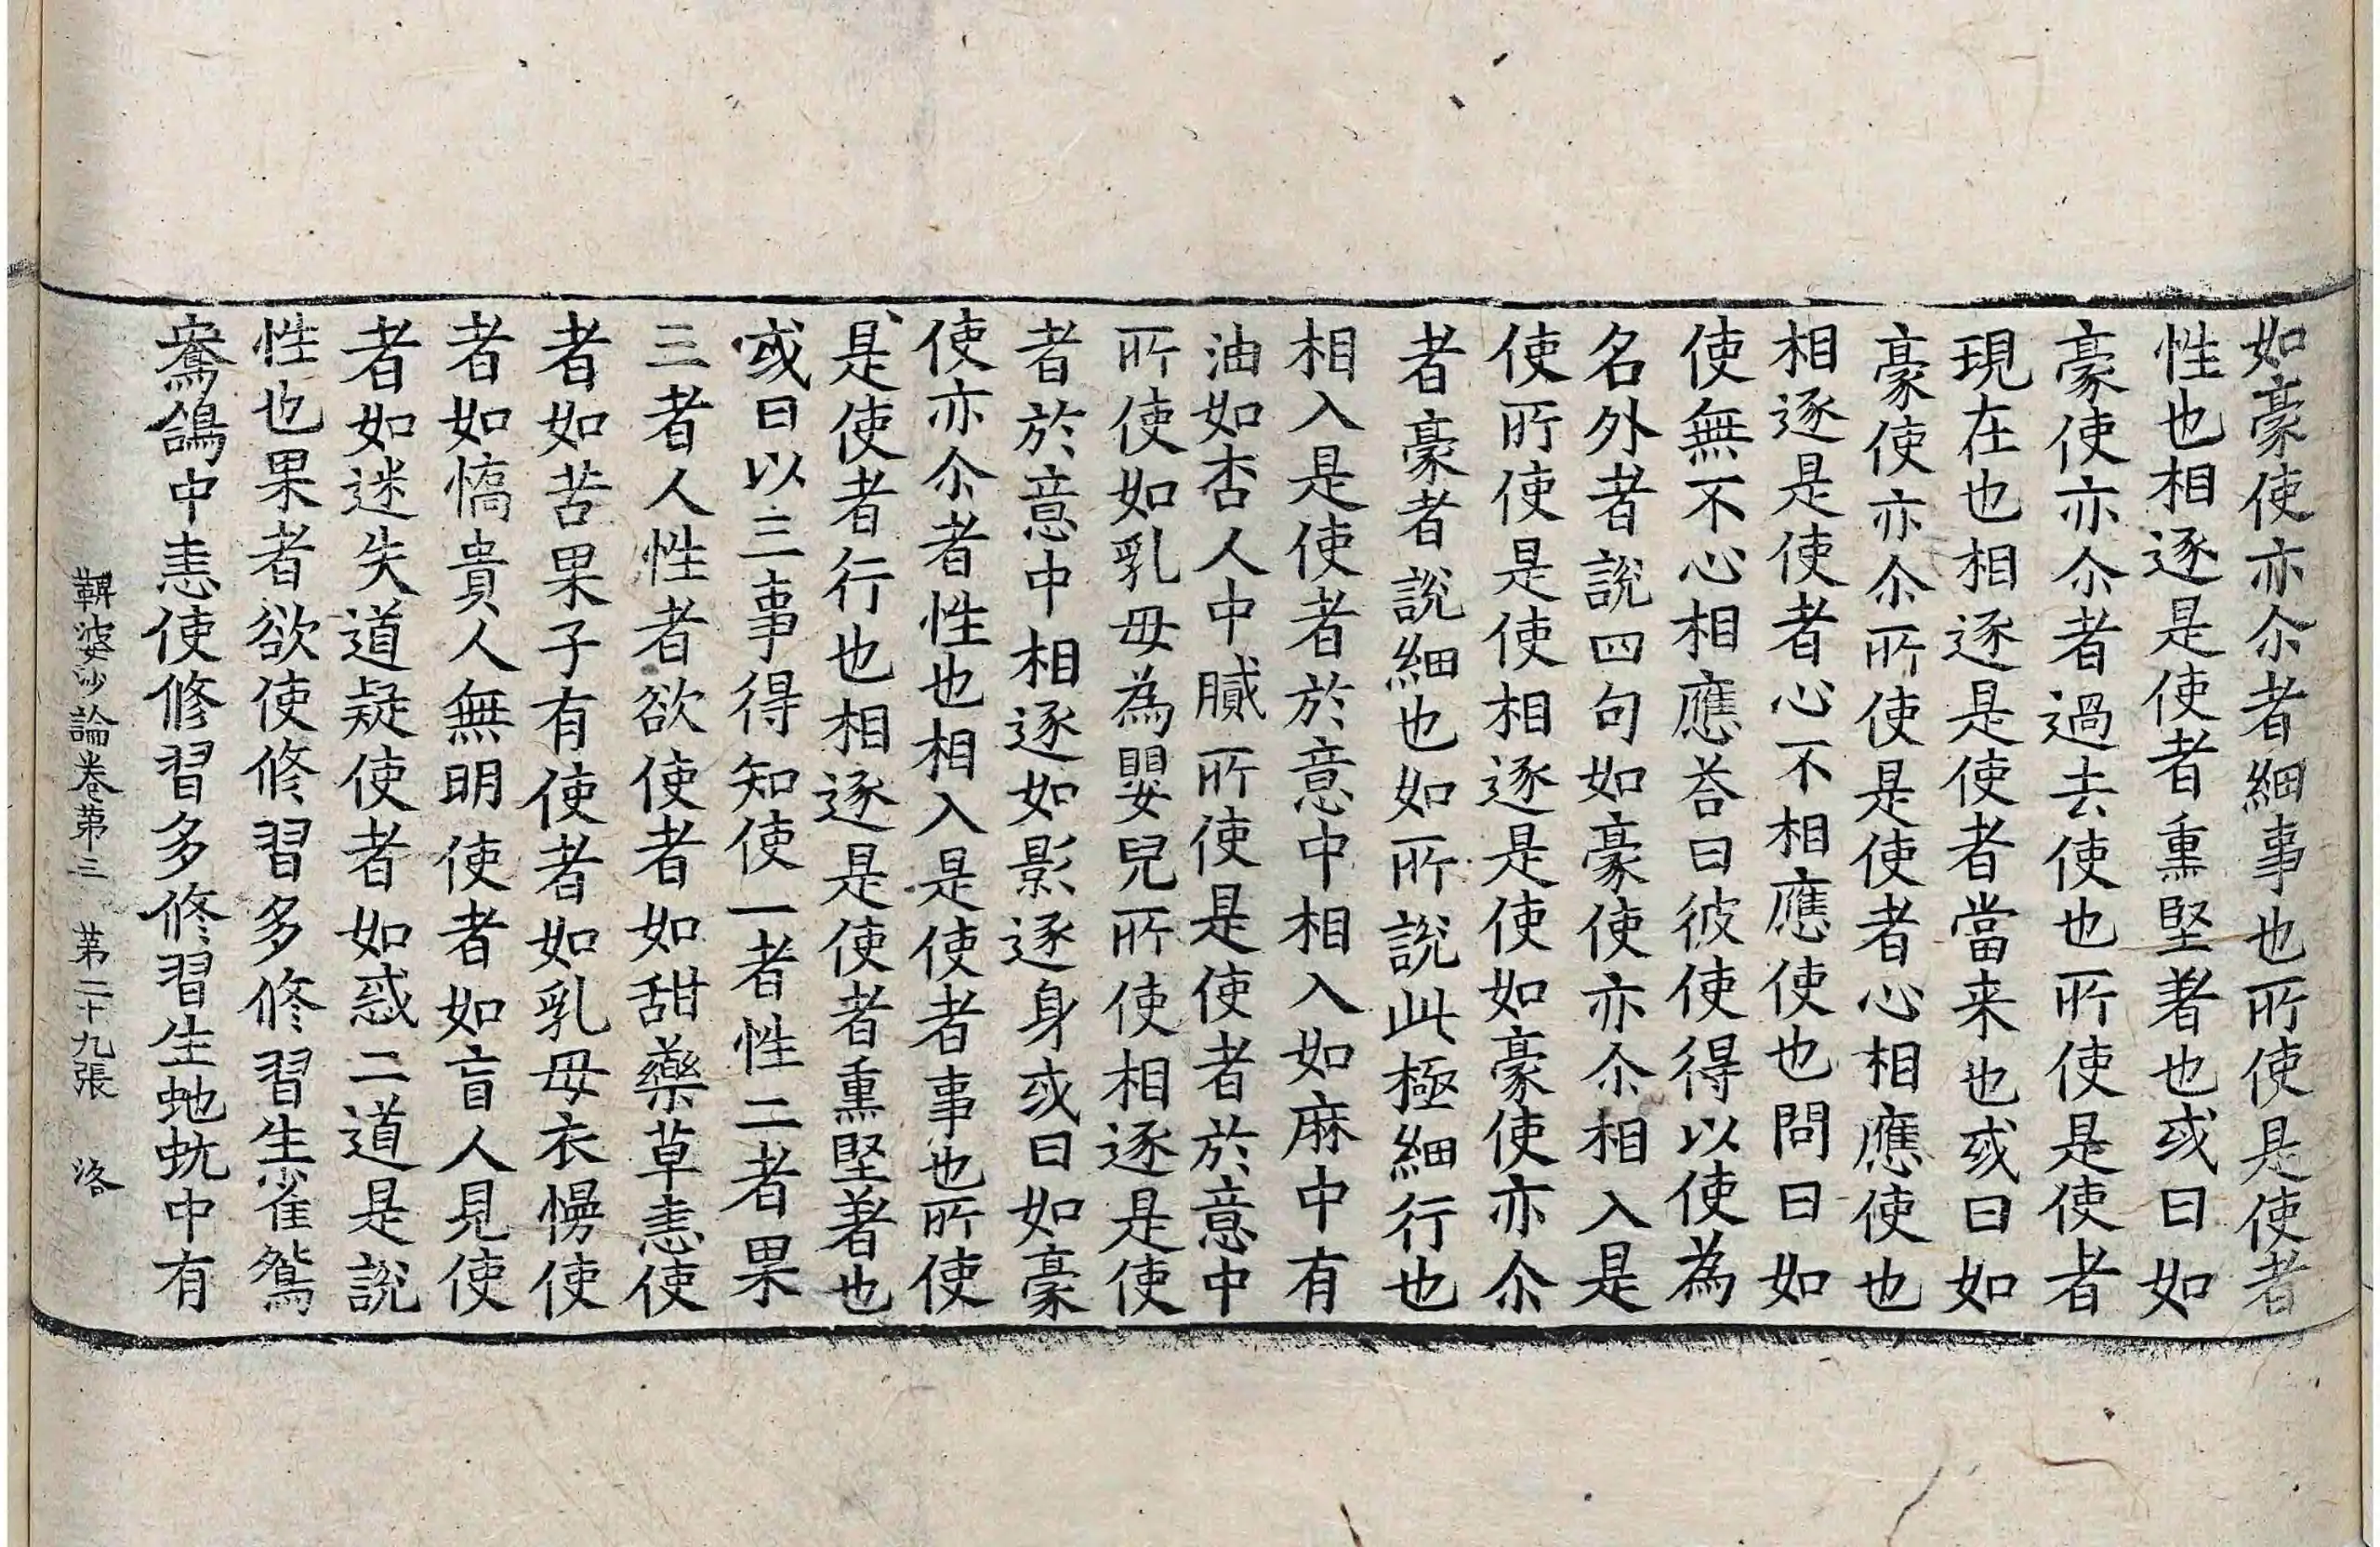 如豪使亦尒者細事也所使是使者
性也相逐是使者重堅著也或曰如
豪使亦尒者過去使也所使是使者
現在也相逐是使者當来也或曰如
豪使亦尒所使是使者心相應使也
相逐是使者心不相應使也問曰如
使無不心相應荅曰彼使得以使為
名外者說四句如豪使亦尒相入是
使所使是使相逐是使如豪使亦尒
者豪者說細也如所說此極細行也
相入是使者於意中相入如麻中有
油如杏人中膩所使是使者於意中
所使如乳母為嬰兒所使相逐是使
者於意中相逐如影逐身或曰如豪
使亦尒者性也相入是使者事也所使
是使者行也相逐是使者重堅著也
或曰以三事得知使一者性二者果
三者人性者欲使者如甜藥草恚使
者如苦果子有使者如乳母衣慢使
者如憍貴人無明使者如盲人見使
者如迷失道疑使者如惑二道是說
性也果者欲使修習多修習生雀鴛
鴦鴿中恚使修習多修習生虵蚖中有
鞞婆沙論卷第三　第二十九張　洛